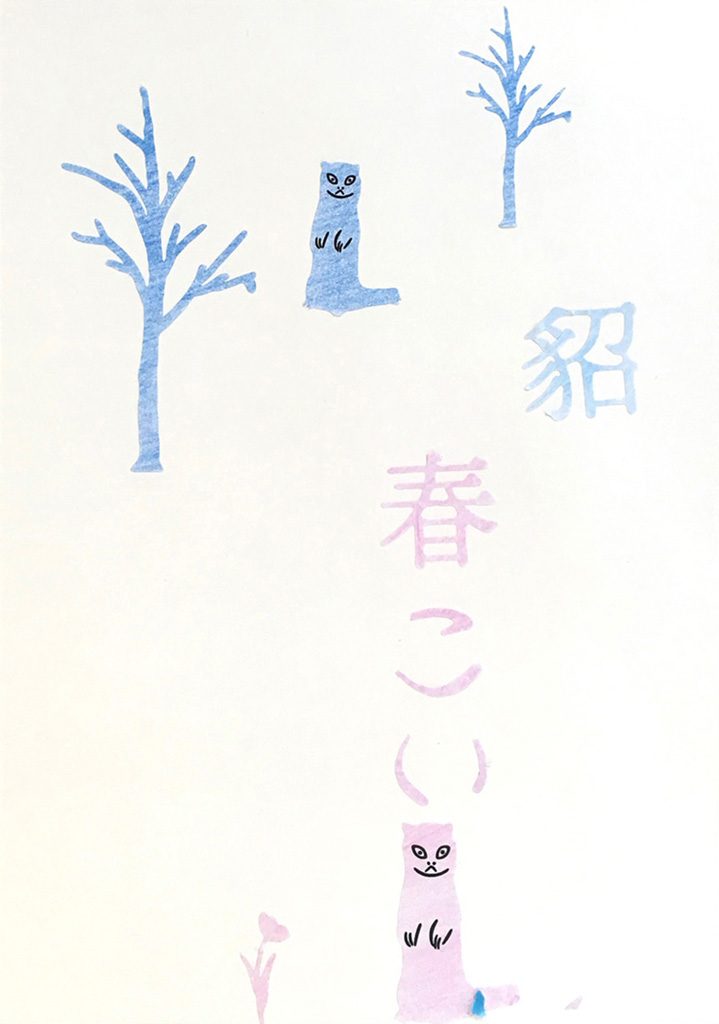 貂
春こい